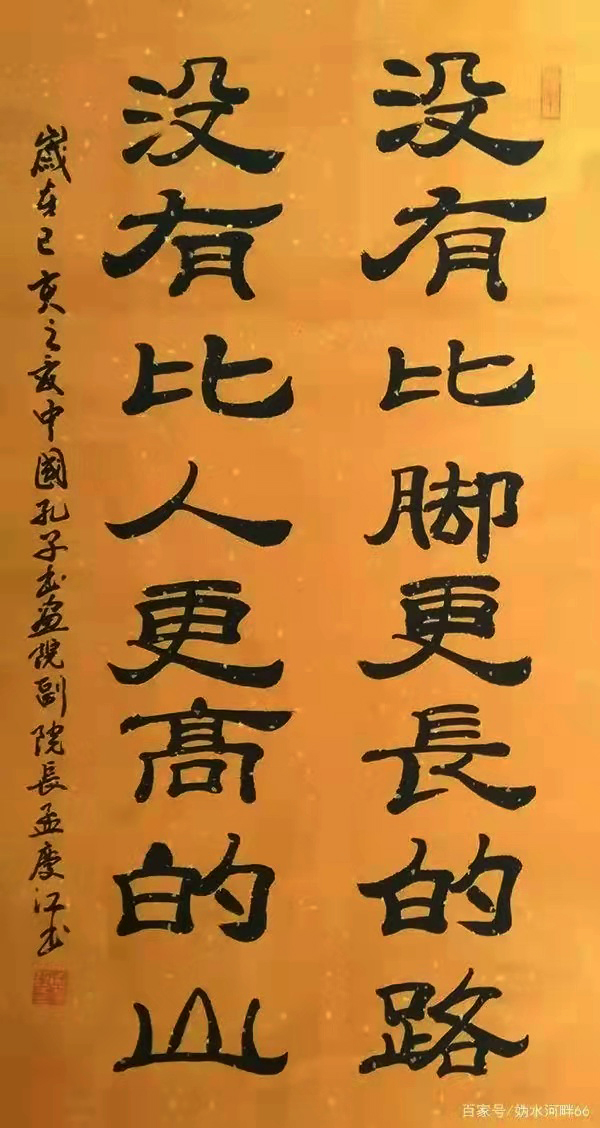 没有比脚更長的路
没有比人更高的山
歲在己亥之夏中國孔子书画院副院長孟慶江书
百家号/妫水河畔66